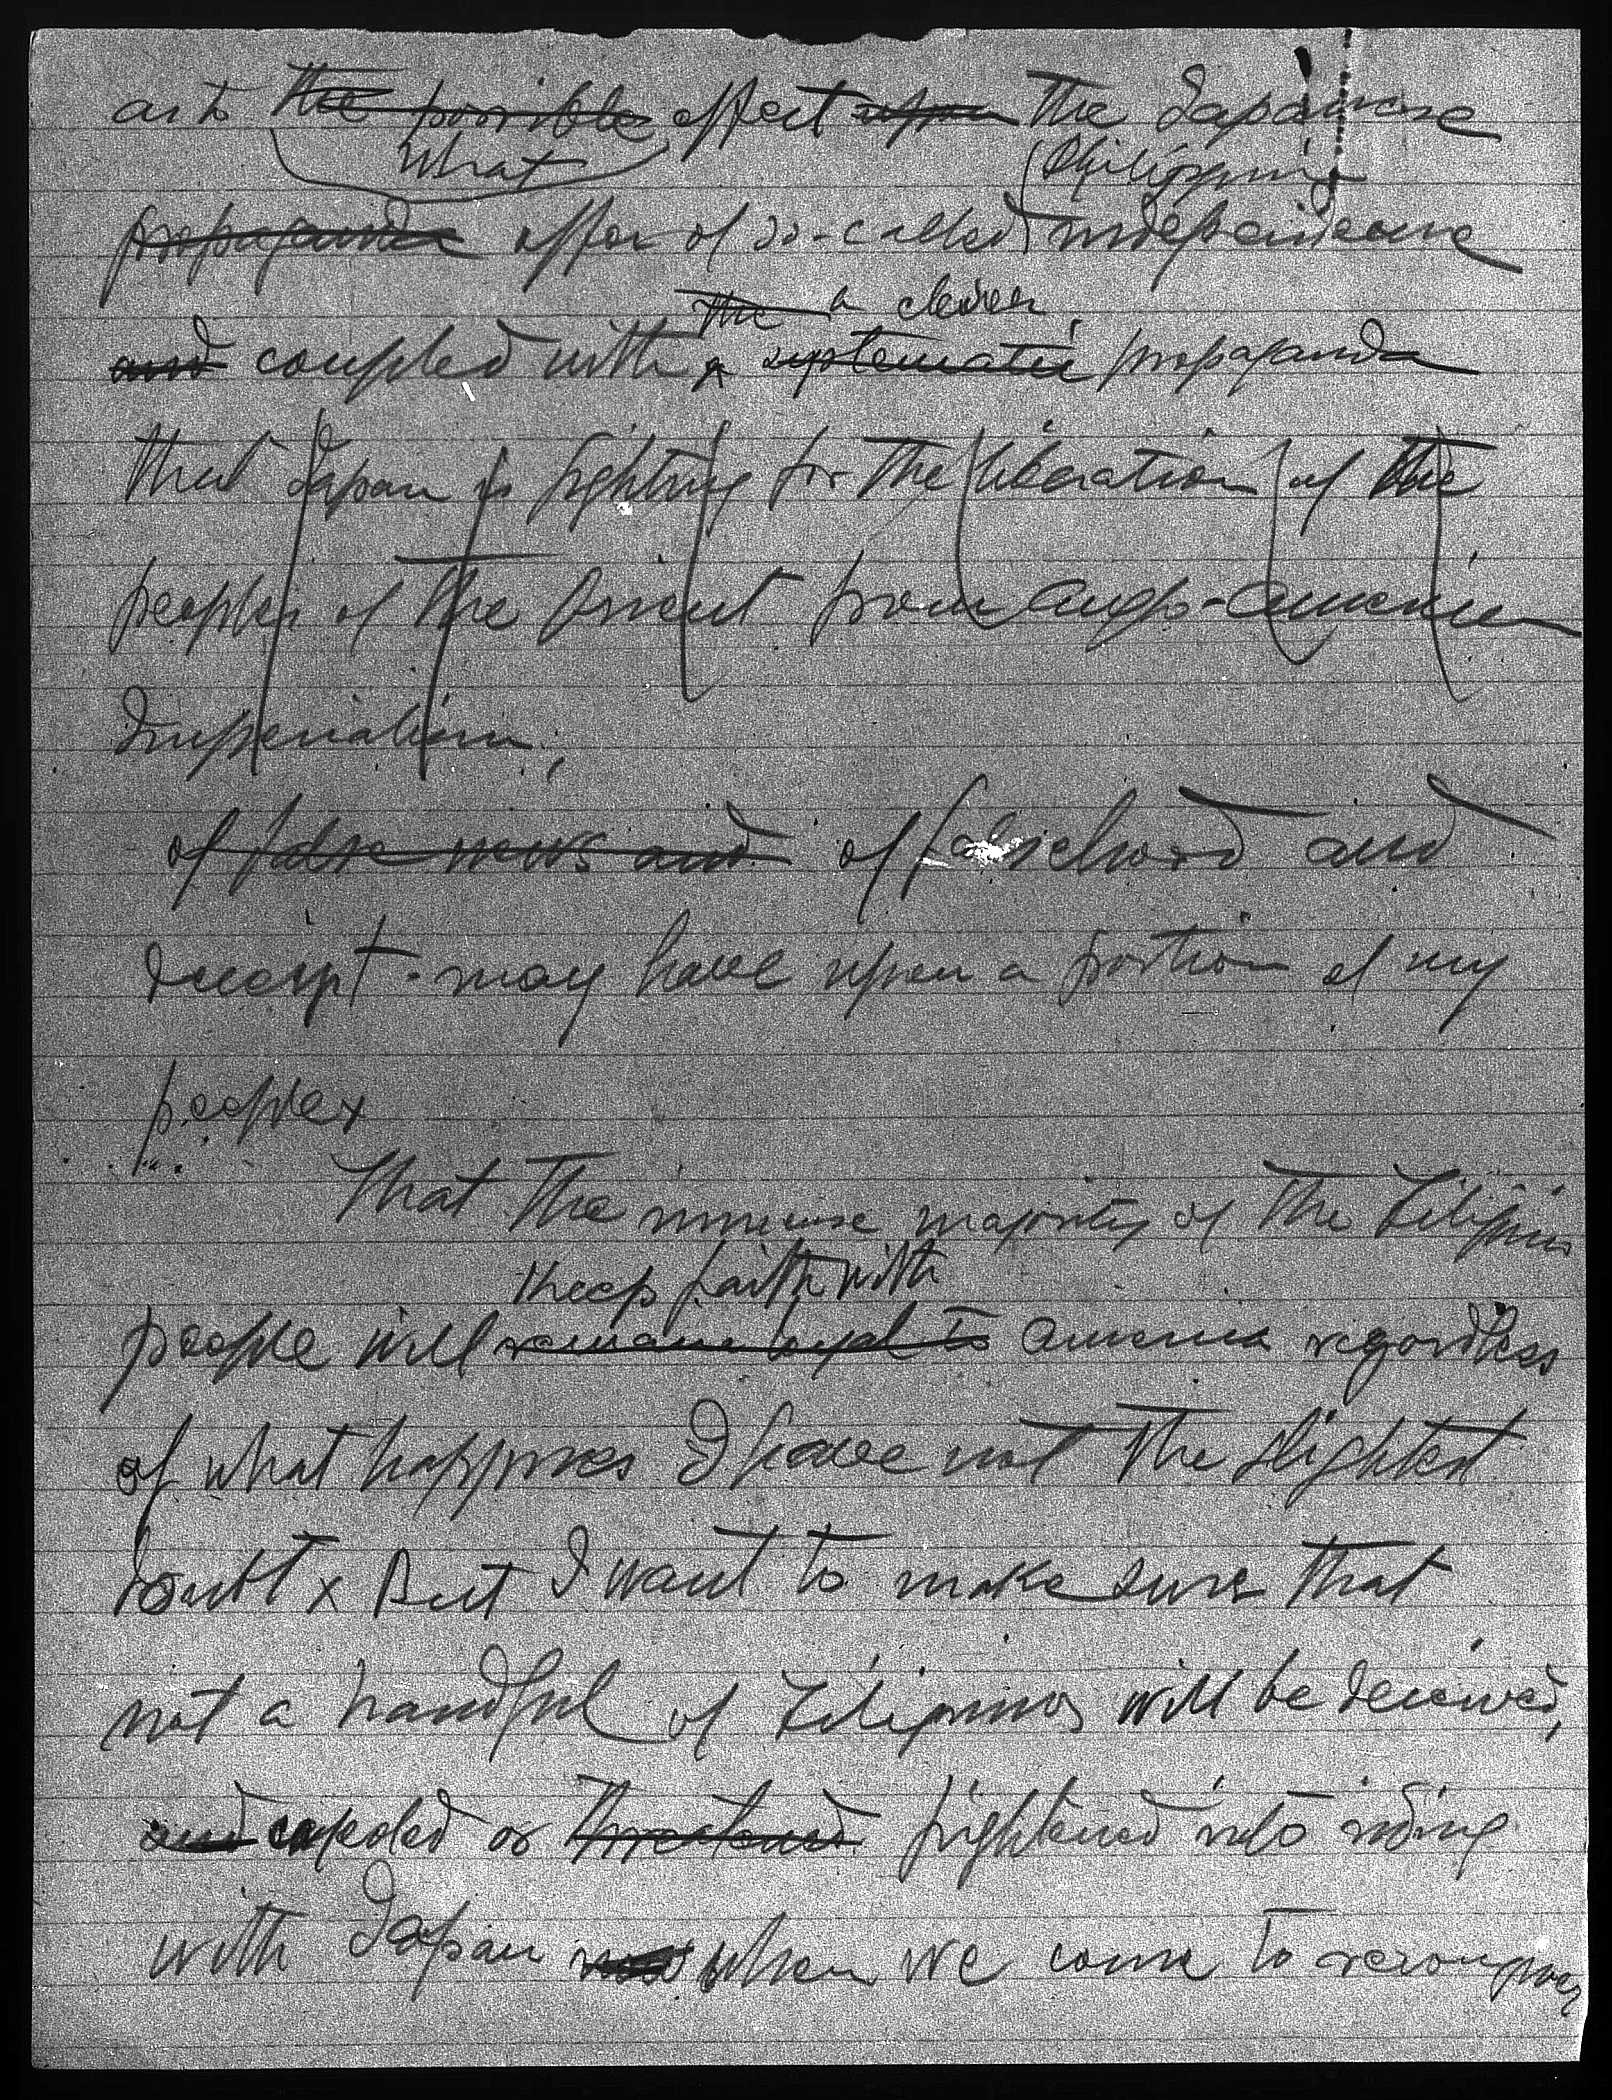 as to the possible effect upon the Japanese
what
Philippine
propaganda offer of so-called independence
the a clever
and coupled with a systematic propaganda
that Japan is fighting for the liberation of the
peoples of the Orient from Anglo-American
Imperialism;
of false news and of falsehood and
deceipt - may have upon a portion of my
people x
That the immense majority of the Filipino
keep faith with
people will remain loyal to America regardless
of what happens I have not the slightest
doubt x But I want to make sure that
not a handful of Filipinos will be deceived,
and cajoled or threatened frightened into siding
with Japan when we come to reconquer